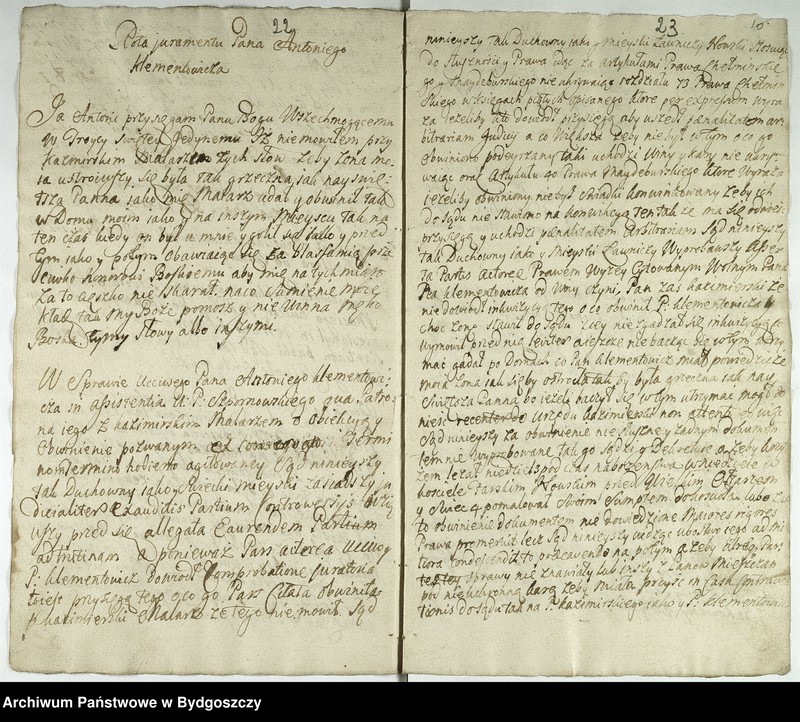 22
Rota juramentu Pana Antoniego
Klementowicza
Ja Antoni przysięgam Panu Bogu Wszechmogącemu
W Troycy Świętey Jedynemu Iż nie mowiłem przy
Kazimirskim Malarzem tych Słow, żeby żona mo-
ia ustroiwszy się była tak grzeczna, jak nayświę-
tsza Panna jako mię Malarz udał y obwinił tak
w Domu moim jako y na inszym Mieyscu tak na
ten czas kiedy on był u mnie y golił się jako y przed
tym jako y potym obawiaiąc się za blasfamią prze
ciwko honorowi Boskiemu aby mię na tych miast
za to ciężko nie skarał. na co Sumienie moie
kładę tak my Boże pomosz y nie Winna męko
Boska. tymy słowy albo inszymi.
W Sprawie Uccіwego Pana Antoniego Klementowi-
cza in assistentia P. Czpernowskiego qua Patro-
na iego z Kazimirskim Malarzem o obiekcyą y
Obwinienie pozwanym ex consequo Termi
no Termino hodierno agitowaney Sąd ninieyszy
tak Duchowny jako y Świecki mieyski zasiadszy ju
dicialiter Exauditis Partium Controversys wziąw
szy przed się allegata Eaurendem Partium
ad trutinam A ponieważ Pars actorea Uccіwy
P. Klementowicz Dowodzi Comprobatione Juratoria
to iest przysięgą tego o co go Pars Citata obwiniła
P. Kazimirski Malarz że tego nie mowił. Sąd
23
ninieyszy tak Duchowny jako y Mieyski Ławniczy Nowski stosuiąc
do słuszności y Prawa idąc za artykułami Prawa Chełminskie
go y Maydeburskiego nie ukrywaiąc rozdziału 73 Prawa Chełmin
skiego w Xsięgach piątych opisanego ktore per expressum wyra
za jeżeliby tak dowiodł przysięgą aby uszedł pœnalitatem ar-
bitrariam Judicij a co większa żeby nie był w tym o co go
obwiniono podeyrzany taki uchodzi Winy y kary nie ukry-
waiąc oraz Artykułu go Prawa Maydeburskiego ktore Wyraża
jeżeliby obwiniony nie był świadki konwinkowany żeby ich
do sądu nie stawiono na konwikcyą Ten także ma się odwieść
przysięgą y uchodzi pœnalitatem arbitrariam Sąd ninieyszy
tak Duchowny jako y Mieyski Ławniczy Wyprobawszy Asser
ta Partis Actoreæ Prawem Wyżey Cytowanym Wolnym Pana
Pta Klementowicza od Winy czyni. Pan zaś Kazimierski że
nie dowiodł inkwizycyą tego o co obwinił P. Klementowicza y
choć żonę stawił do Sądu, lecz nie zgadzał się inkwizycyą co
wymowił przed nią leviter a ieszcze nie bacząc się w tym utrzy
mać gadał po Domach co Pan Klementowicz miał powiedzieć że
moia żona jak się by ustroiła tak by była grzeczna jak nay
świętsza Panna bo ieżeli poczuł się w tym utrzymać mogł do
nieść recenter do Urzędu Kazimirski non attento więc
Sąd ninieyszy za obwinienie nie słuszne y żadnym dokumen
tem nie wyprobowane tak go sądzi y Dekretuie ażeby krzy
żem leżał niedziel pod czas nabożenstwa w niedziele w
kościele Farskim Nowskim przed Wielkim Ołtarzem
y Świec 4 pomalował swoim sumptem do kościoła lubo za
to obwinienie dokumentem nie dowiedzione Maiores rigores
Prawa promeruit lecz Sąd ninieyszy widząc ubostwo iego ad mi
tiora kondescendit to pracavendo na potym ażeby obiedwie Par
tes tey sprawy nie znawiały lub inszy z Panow Mieszczan
pod nieuchronną karą żeby miała przyiść in casu contraven
tionis do sądu tak na P. Kazimirskiego jako y P. Klementowicza
Archiwum Państwowe w Bydgoszczy